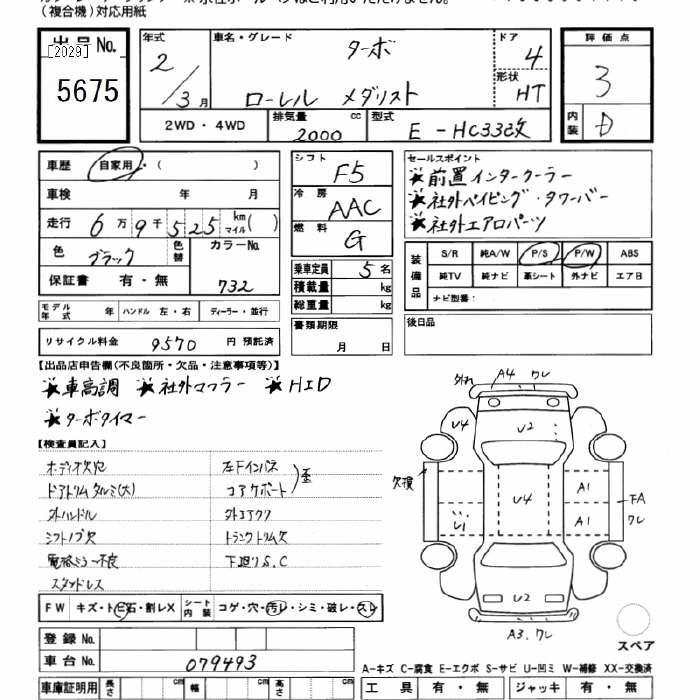 (複合機)対応用紙
出品No.
[2029]
5675
年式
2/3月
車名・グレード
ターボ
ローレル メダリスト
ドア
4
形状
HT
2WD・4WD
排気量
2000
cc
型式
E-HC33改
評価点
3
内装
D
車歴
自家用・( )
車検 年 月
走行 6万9千525 km マイル( )
色
ブラック
色替
カラーNo.
732
保証書 有・無
モデル年式 年 ハンドル 左・右 ディーラー・並行
リサイクル料金 9570 円 預託済
シフト
F5
冷房
AAC
燃料
G
乗車定員 5 名
積載量 kg
総重量 kg
書類期限
月 日
セールスポイント
★前置インタークーラー
★社外パイピング・タワーバー
★社外エアロパーツ
装備品
S/R 純A/W P/S P/W ABS
純TV 純ナビ 革シート 外ナビ エアB
ナビ型番:
後日品
【出品店申告欄(不良箇所・欠品・注意事項等)】
★車高調 ★社外マフラー ★HID
★ターボタイマー
【検査員記入】
オーディオ欠穴
ドアトリムタルミ(大)
外ハンドル
シフトノブ欠
電格ミラー不良
スタッドレス
左Fインパネ
コアサポート
歪
外エアクリ
トランクトリム欠
下廻りS.C
FW キズ・トビ石・割レX シート内装 コゲ・穴・汚レ・シミ・破レ・スレ
登録No.
車台No. 079493
車庫証明用 長さ cm 幅 cm 高さ cm
外れ
A4 ワレ
U4
U2
欠損
U4
A1
A1
U1
FA
ワレ
U2
A3.ワレ
スペア
A-キズ C-腐食 E-エクボ S-サビ U-凹ミ W-補修 XX-交換済
工具 有・無 ジャッキ 有・無